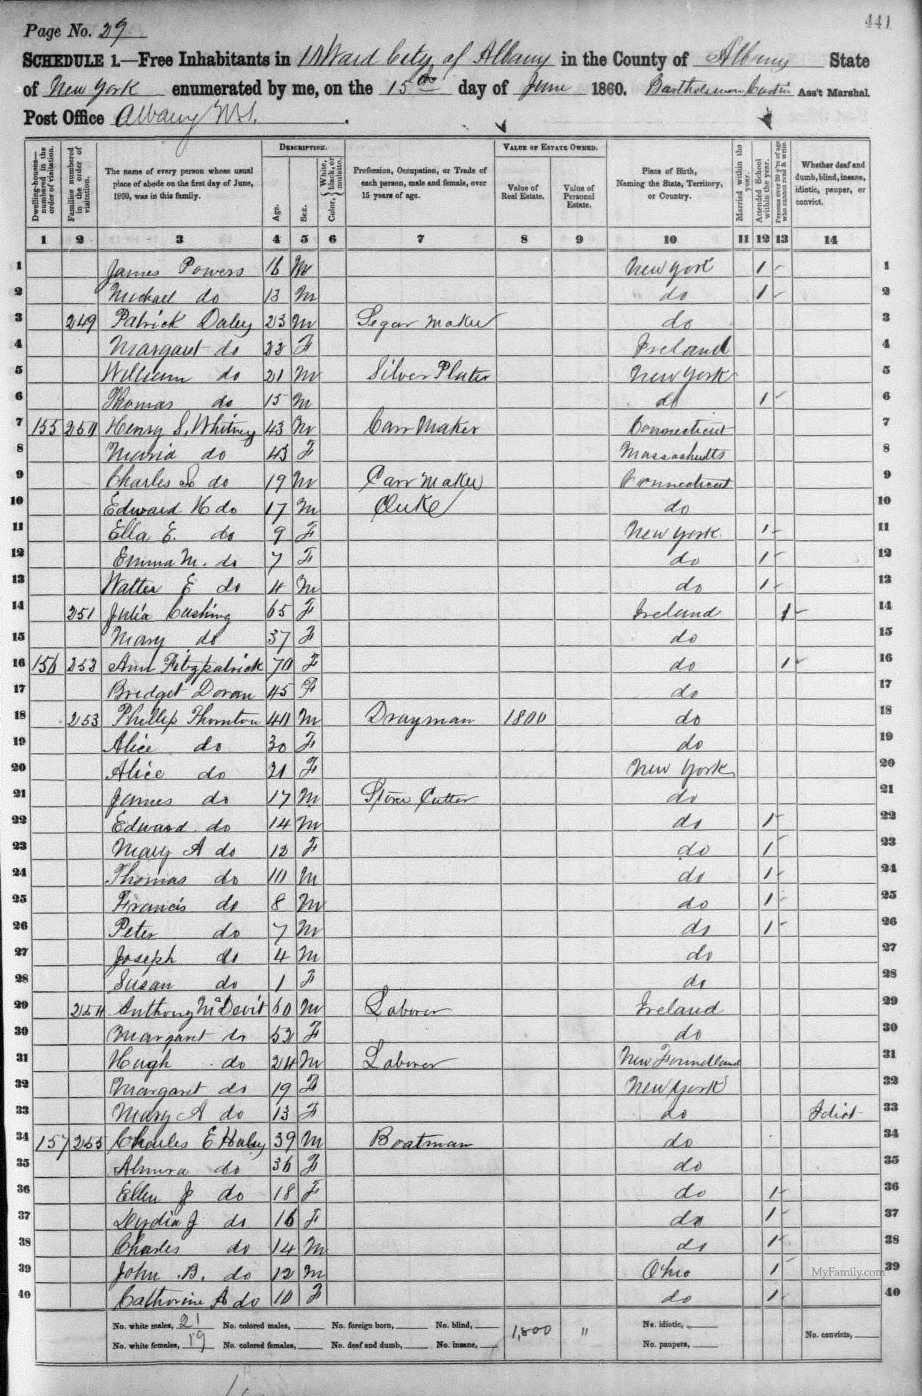 441
Page No. 29
SCHEDULE 1.—Free Inhabitants in 10 Ward City of Albany in the County of Albany State
of New York enumerated by me, on the 15th day of June 1860. Ass't Marshal.
Post Office Albany N.Y.
DESCRIPTION. VALUE OF ESTATE OWNED.
Dwelling-houses—numbered in the order of visitation. Families numbered in the order of visitation. The name of every person whose usual place of abode on the first day of June, 1860, was in this family. Age. Sex. Color, {White, black, or mulatto. Profession, Occupation, or Trade of each person, male and female, over 15 years of age. Value of Real Estate. Value of Personal Estate. Place of Birth, Naming the State, Territory, or Country. Married within the year. Attended School within the year. Persons over 20 y'rs of age who cannot read & write. Whether deaf and dumb, blind, insane, idiotic, pauper, or convict.
1 2 3 4 5 6 7 8 9 10 11 12 13 14
1 James Powers 16 M New York 1 1
2 Michael do 13 M do 1 2
3 249 Patrick Daley 23 M Segar Maker do 3
4 Margaret do 22 F Ireland 4
5 William do 21 M Silver Plater New York 5
6 Thomas do 15 M do 1 6
7 155 250 Henry S. Whitney 43 M Carr Maker Connecticut 7
8 Maria do 43 F Massachutts 8
9 Charles S do 19 M Carr Maker Connecticut 9
10 Edward H do 17 M Clerk do 10
11 Ella E. do 9 F New York 1 11
12 Emma M. do 7 F do 1 12
13 Walter E do 4 M do 1 13
14 251 Julia Cushing 65 F Ireland 1 14
15 Mary do 37 F do 15
16 156 252 Ann Fitzpatrick 70 F do 1 16
17 Bridget Doran 45 F do 17
18 253 Phillip Thornton 40 M Drayman 1800 do 18
19 Alice do 30 F do 19
20 Alice do 21 F New York 20
21 James do 17 M Stone Cutter do 21
22 Edward do 14 M do 1 22
23 Mary A do 12 F do 1 23
24 Thomas do 10 M do 1 24
25 Francis do 8 M do 1 25
26 Peter do 7 M do 1 26
27 Joseph do 4 M do 27
28 Susan do 1 F do 28
29 254 Anthony McDevit 60 M Laborer Ireland 29
30 Margaret do 52 F do 30
31 Hugh do 24 M Laborer New Foundland 31
32 Margaret do 19 F New York 32
33 Mary A do 13 F do Idiot 33
34 157 255 Charles E Haley 39 M Boatman do 34
35 Almira do 36 F do 35
36 Ellen J do 18 F do 1 36
37 Lydia J do 16 F do 1 37
38 Charles do 14 M do 1 38
39 John B. do 12 M Ohio 1 39
MyFamily.com
40 Catherine A do 10 F do 1 40
No. white males, 21 No. colored males, No. foreign born, No. blind, 1,800 " No. idiotic, No. convicts,
No. white females, 19 No. colored females, No. deaf and dumb, No. insane, No. paupers,